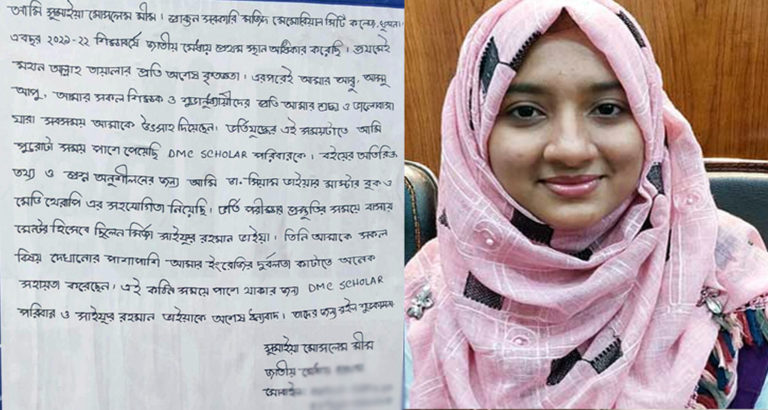 আমি সুমাইয়া মোসলেম মীম। খুলনা সরকারি মজিদ মেমোরিয়াল সিটি কলেজ, খুলনা।
এবছর ২০২১-২২ শিক্ষাবর্ষে জাতীয় মেধায় প্রথম স্থান অধিকার করেছি। প্রথমেই
মহান আল্লাহ তায়ালার প্রতি অশেষ কৃতজ্ঞতা। এরপরেই আমার আব্বু, আম্মু
আপু, আমার সকল শিক্ষক ও শুভানুধ্যায়ীদের প্রতি আমার শ্রদ্ধা ও ভালোবাসা
যারা সবসময় আমাকে উৎসাহ দিয়েছেন। ভর্তিযুদ্ধের এই সময়টাতে আমি
পুরোটা সময় পাশে পেয়েছি DMC SCHOLAR পরিবারকে। বইয়ের অতিরিক্ত
তথ্য ও প্রশ্ন অনুশীলনের জন্য আমি ডা. সিয়াম ভাইয়ার মাস্টার বুক ও
মেডি থেরাপি এর সহযোগিতা নিয়েছি। ভর্তি পরীক্ষার প্রস্তুতির সময়ে বাসার
মেন্টর হিসেবে ছিলেন মির্জা সাইফুর রহমান ভাইয়া। তিনি আমাকে সকল
বিষয় দেখানোর পাশাপাশি আমার ইংরেজির দুর্বলতা কাটাতে অনেক
সহায়তা করেছেন। এই কঠিন সময়ে পাশে থাকার জন্য DMC SCHOLAR
পরিবার ও সাইফুর রহমান ভাইয়াকে অশেষ ধন্যবাদ। তাদের জন্য রইল শুভকামনা
সুমাইয়া মোসলেম মীম
জাতীয়